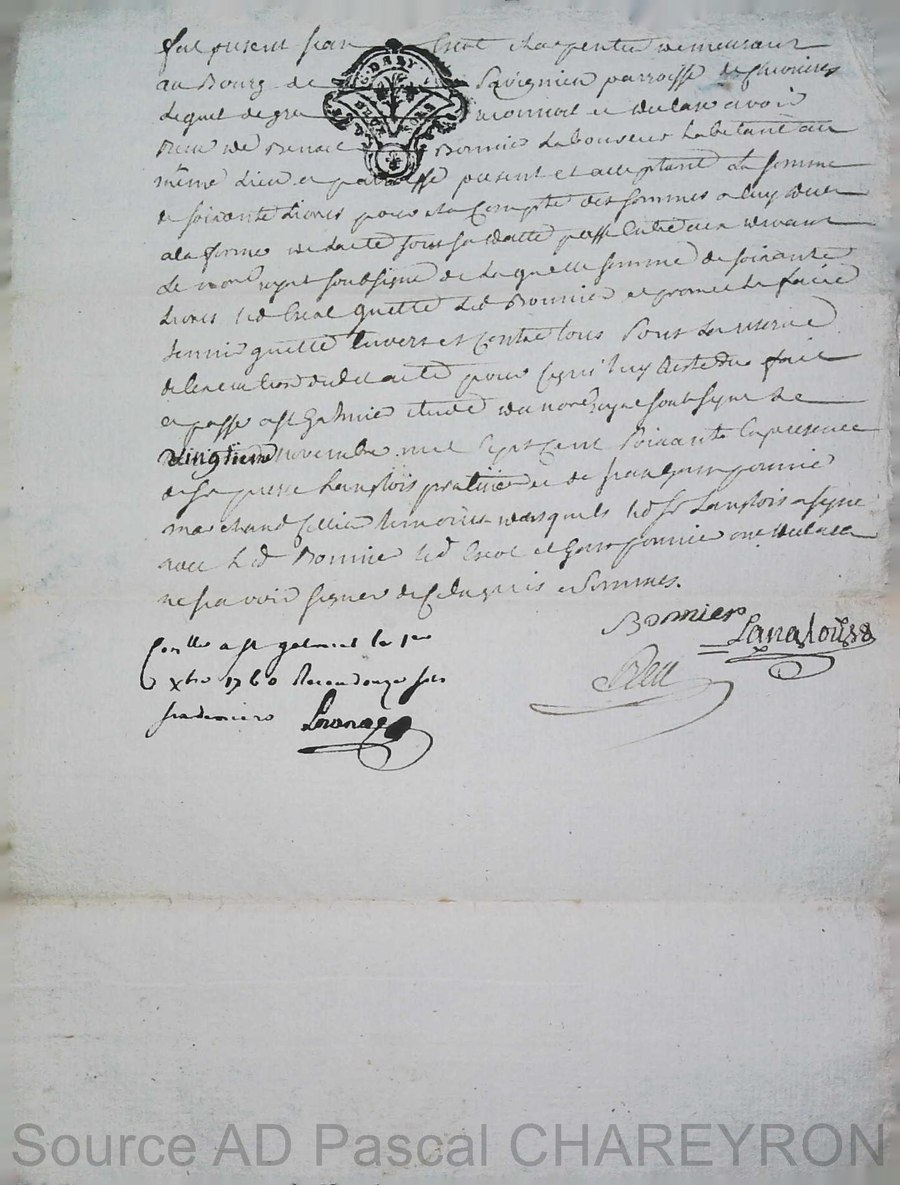 fut present Jean Crot charpentier demeurant
au Bourg de parroisse de
Lequel de gré reconnoit et declare avoir
Reçu de Benoit Bonnier Laboureur habitant au
même Lieu et parroisse present et acceptant La somme
de soixante Livres pour et a Compte des sommes a luy dues
a la forme de Lacte sous sa datte passé devant
Le no.re royal soubsigné de Laquelle somme de soixante
Livres led Crot quitte led Bonnier et promet de faire
tenir quitte Envers et Contre tous sous La reserve
dudit acte pour Ce qui luy reste du fait
et passé a St Galmier Etude du no.re Royal soubsigné Le
vingtieme novembre mil sept cent soixante En presence
de Sr pierre Langlois praticien et de Jean
marchand sellier temoins desquels led Sr Langlois a signé
avec led Bonnier led Crot et ont declaré
ne sçavoir signer de Ce Enquis et Sommés.
Bonnier
Langlois
Con.lle a St galmier le 1er
xbre 1760 Recu douze sols
six deniers